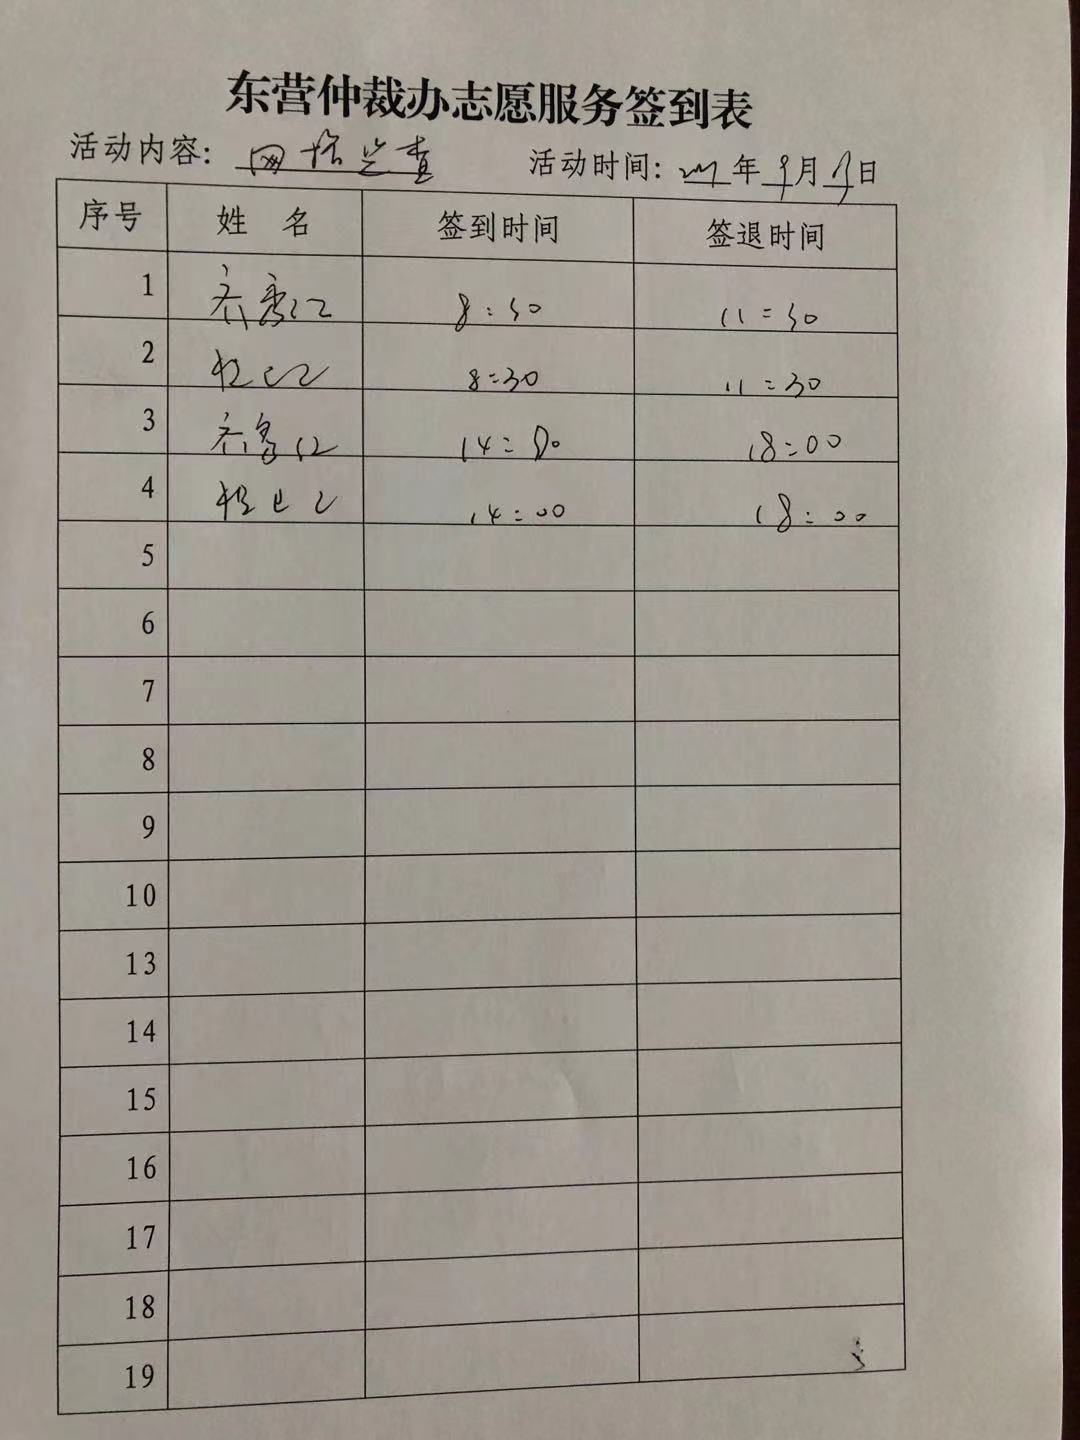 东营仲裁办志愿服务签到表
活动内容: 网格 查 活动时间: 年 月 日
序号 姓 名 签到时间 签退时间
1 齐秀江 8:30 11:30
2 8:30 11:30
3 齐秀江 14:00 18:00
4 14:00 18:00
5
6
7
8
9
10
13
14
15
16
17
18
19